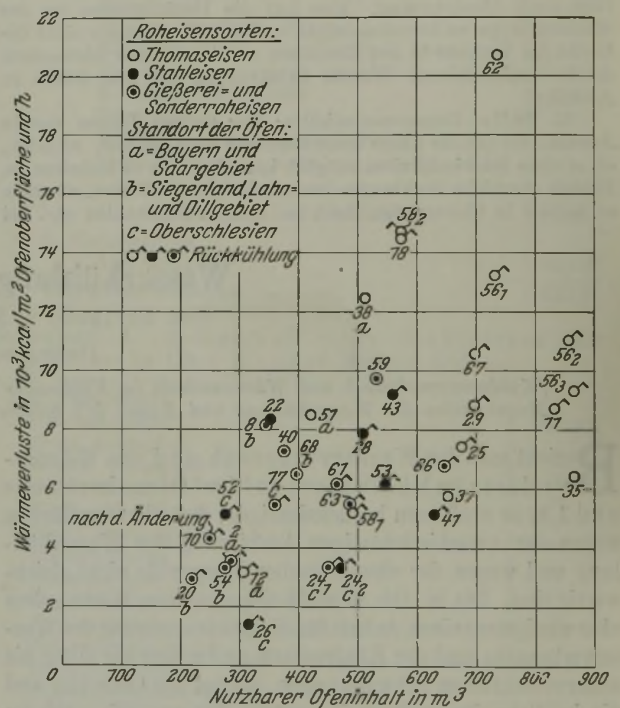 Wärmeverluste in 10³kcal/m² Ofenoberfläche und h
22
20
18
16
74
72
70
8
6
4
2
0
Roheisensorten:
Thomaseisen
Stahleisen
Gießerei= und
Sonderroheisen
Standort der Öfen:
a=Bayern und
Saargebiet
b=Siegerland, Lahn=
und Dillgebiet
c=Oberschlesien
Rückkühlung
62
58₂
78
56₁
38
a
67
56₂
59
56₃
43
29
71
22
8
b
57
a
40
68
b
28
25
66
77
c
67
53
35
63
58₁
37
41
52
c
nach d. Änderung
70
2
a
20
b
54
b
72
a
24₁
c
24₂
c
26
c
0 100 200 300 400 500 600 700 800 900
Nutzbarer Ofeninhalt in m³